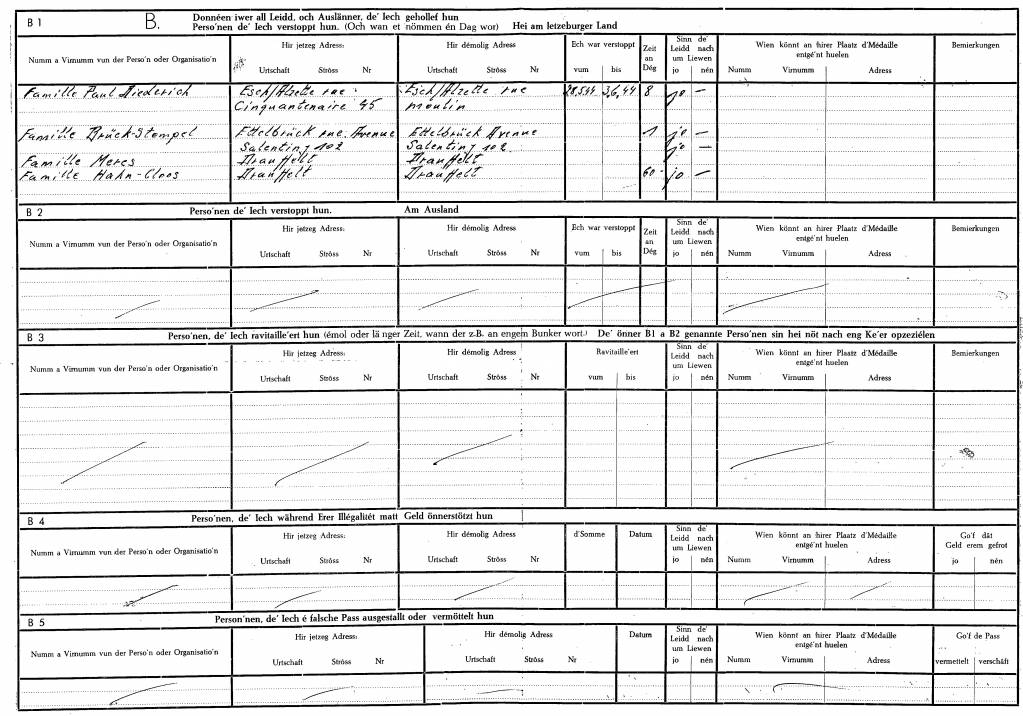 B 1 B. Donnéen iwer all Leidd, och Auslänner, de' Iech gehollef hun
Perso'nen de' Iech verstoppt hun. (Och wan et nömmen én Dag wor) Hei am letzeburger Land
Numm a Virnumm vun der Perso'n oder Organisatio'n
Hir jetzeg Adress: Urtschaft Ströss Nr
Hir démolig Adress Urtschaft Ströss Nr
Ech war verstoppt vum bis
Zeit an Dég
Sinn de' Leidd nach um Liewen jo nén
Wien könnt an hirer Plaatz d'Médaille entgé'nt huelen Numm Virnumm Adress
Bemierkungen
Famille Paul Diederich Esch/Alzette rue Esch/Alzette rue 28.5.44 3.6.44 8 jo —
Cinquantenaire 45 moulin
Famille Brück-Stempel Ettelbrück rue. Avenue Ettelbrück Avenue 1 jo —
Salentiny 102 Salentiny 102 jo —
Famille Meres Drauffelt Drauffelt
Famille Hahn-Cloos Drauffelt Drauffelt 60 jo —
B 2 Perso'nen de' Iech verstoppt hun. Am Ausland
Numm a Virnumm vun der Perso'n oder Organisatio'n
Hir jetzeg Adress: Urtschaft Ströss Nr
Hir démolig Adress Urtschaft Ströss Nr
Ech war verstoppt vum bis
Zeit an Dég
Sinn de' Leidd nach um Liewen jo nén
Wien könnt an hirer Plaatz d'Médaille entgé'nt huelen Numm Virnumm Adress
Bemierkungen
B 3 Perso'nen, de' Iech ravitaille'ert hun (émol oder lä nger Zeit, wann der z.B. an engem Bunker wort.) De' önner B1 a B2 genannte Perso'nen sin hei nöt nach eng Ke'er opzeziélen
Numm a Virnumm vun der Perso'n oder Organisatio'n
Hir jetzeg Adress: Urtschaft Ströss Nr
Hir démolig Adress Urtschaft Ströss Nr
Ravitaille'ert vum bis
Sinn de' Leidd nach um Liewen jo nén
Wien könnt an hirer Plaatz d'Médaille entgé'nt huelen Numm Virnumm Adress
Bemierkungen
B 4 Perso'nen, de' Iech während Erer Illégalitét matt Geld önnerstötzt hun
Numm a Virnumm vun der Perso'n oder Organisatio'n
Hir jetzeg Adress: Urtschaft Ströss Nr
Hir démolig Adress Urtschaft Ströss Nr
d'Somme Datum
Sinn de' Leidd nach um Liewen jo nén
Wien könnt an hirer Plaatz d'Médaille entgé'nt huelen Numm Virnumm Adress
Go'f dât Geld erem gefrot jo nén
B 5 Person'nen, de' Iech é falsche Pass ausgestallt oder vermöttelt hun
Numm a Virnumm vun der Perso'n oder Organisatio'n
Hir jetzeg Adress: Urtschaft Ströss Nr
Hir démolig Adress Urtschaft Ströss Nr
Datum
Sinn de' Leidd nach um Liewen jo nén
Wien könnt an hirer Plaatz d'Médaille entgé'nt huelen Numm Virnumm Adress
Go'f de Pass vermettelt verschâft